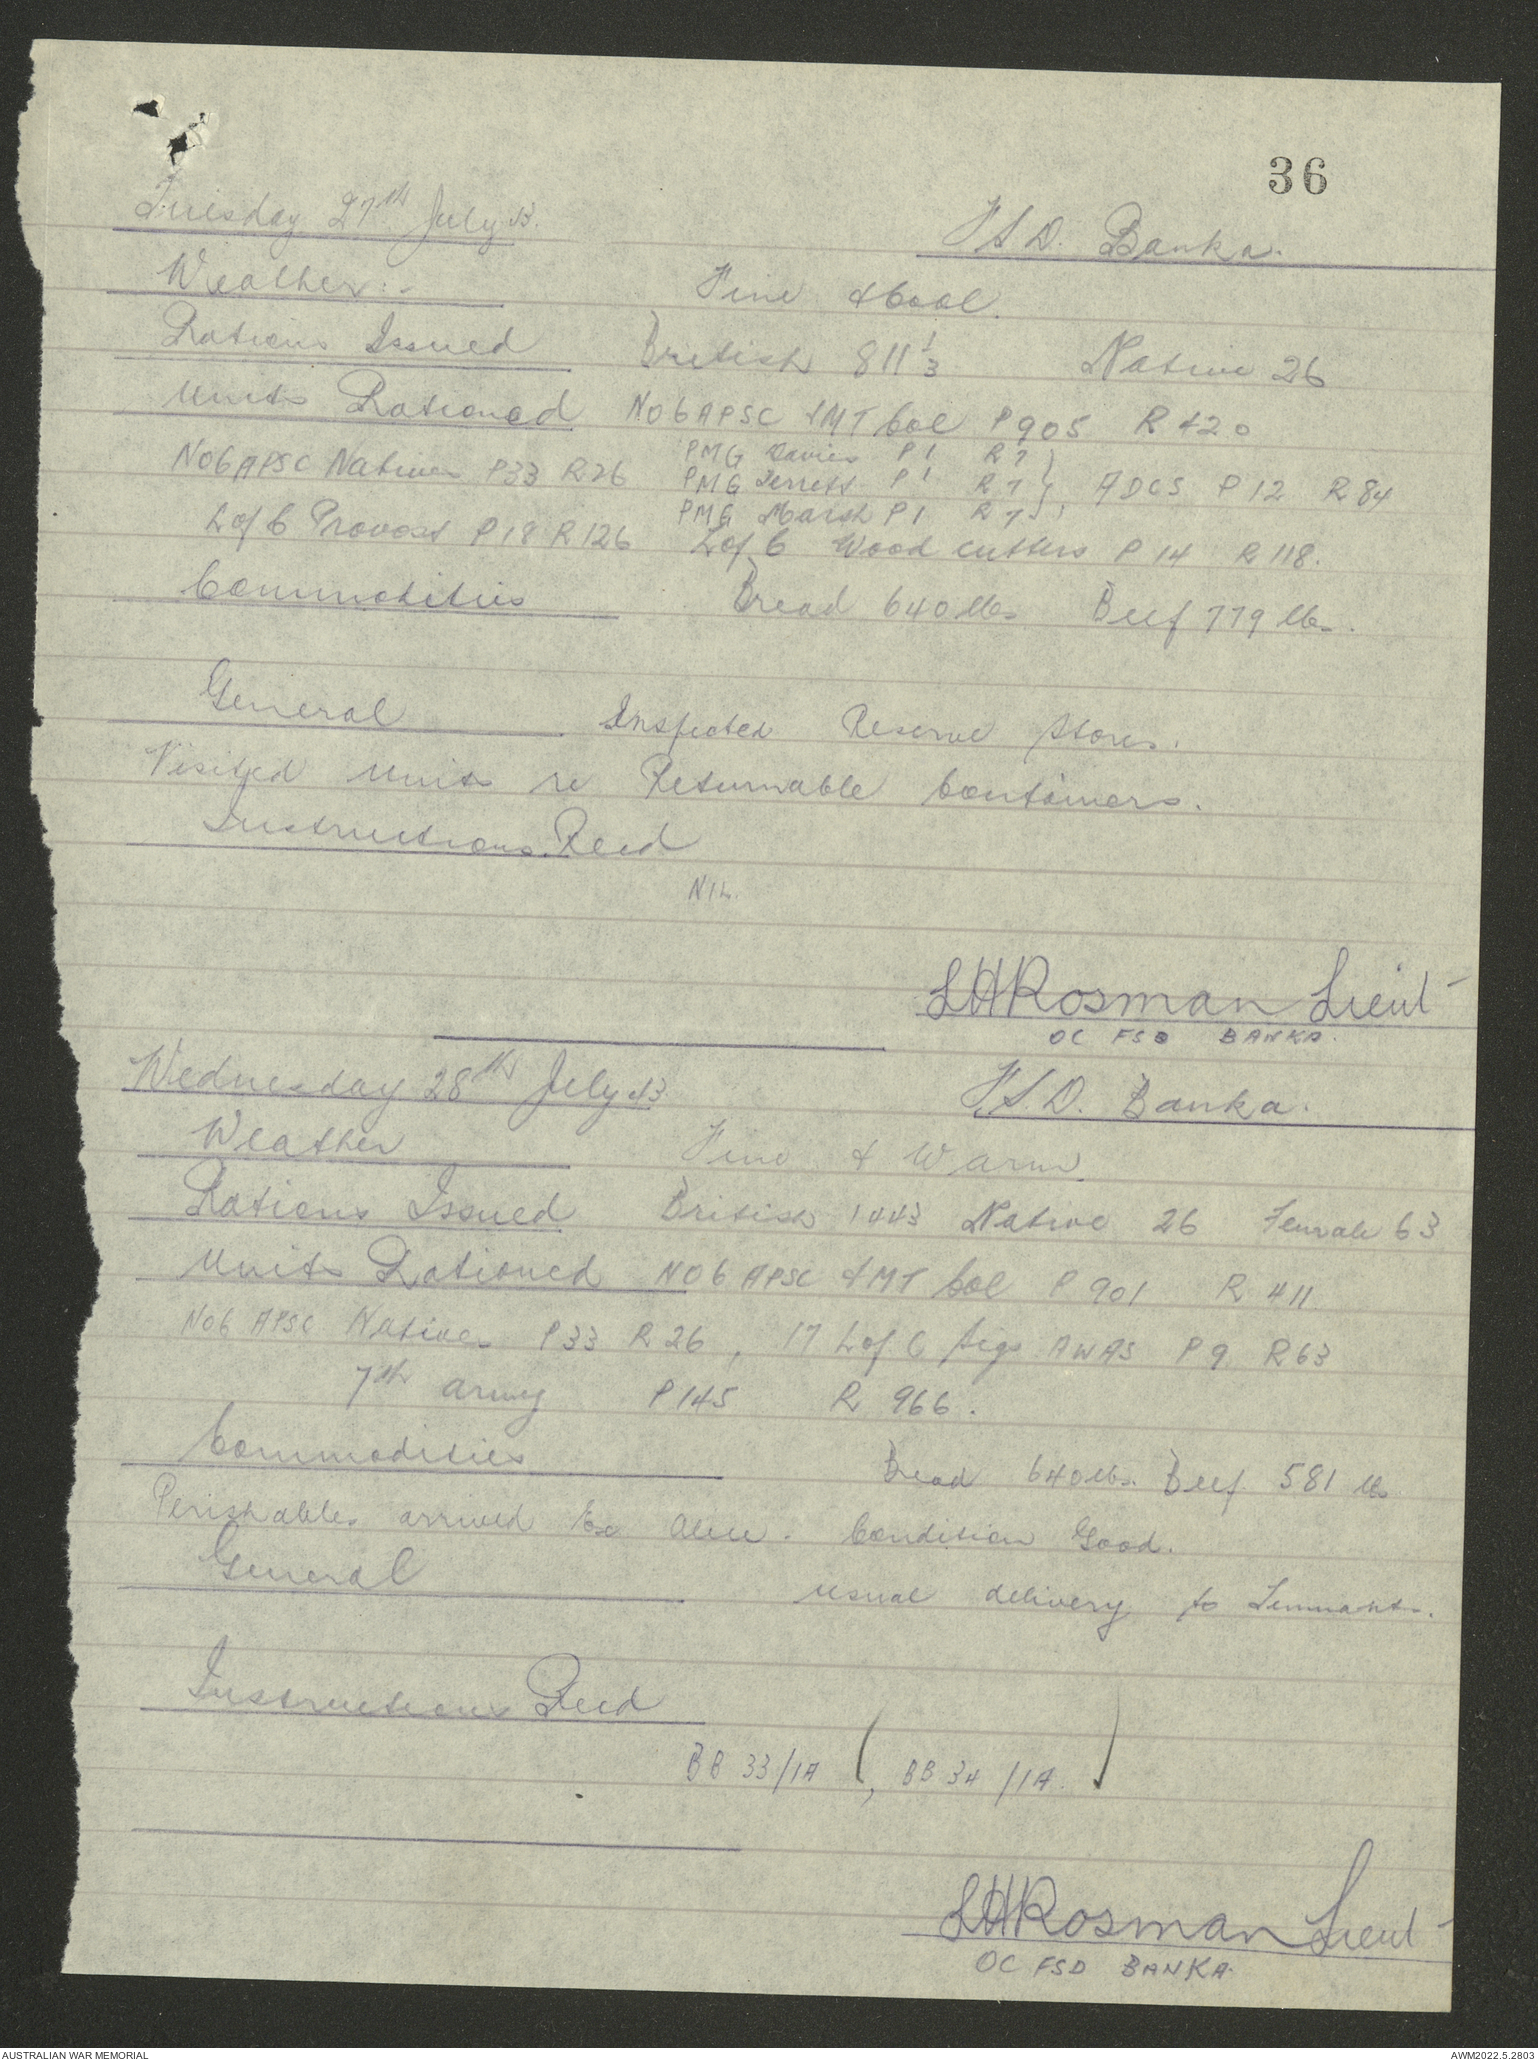 36
Tuesday 27th July 43.
F.S.D. Banka.
Weather:- Fine & Cool.
Rations Issued British 811 1/3 Native 26
Units Rationed No 6 APSC & MT Col P 905 R 420
No 6 APSC Natives P33 R26 PMG Davies P 1 R 7 }
PMG Jerrett P 1 R 7 }, ADCS P 12 R 84
PMG Marsh P 1 R 7 }
L of C Provost P 18 R 126 L of C Wood cutters P 14 R 118.
Commodities Bread 640 lbs Beef 779 lbs.
General Inspected Reserve Stores.
Visited Units re Returnable Containers.
Instructions Recd
NIL.
LH Rosman Lieut
OC FSD BANKA.
Wednesday 28th July 43
F.S.D. Banka.
Weather Fine & Warm
Rations Issued British 1443 Native 26 Female 63
Units Rationed No 6 APSC & MT Col P 901 R 411
No 6 APSC Natives P33 R 26, 17 L of C Sigs AWAS P 9 R 63
7th army P 145 R 966.
Commodities Bread 640 lbs. Beef 581 lbs
Perishables arrived Ex Alice. Condition Good.
General usual delivery to Tennants.
Instructions Recd
BB 33/1A (, BB 34/1A. )
LH Rosman Lieut
OC FSD BANKA.
AUSTRALIAN WAR MEMORIAL
AWM2022.5.2803